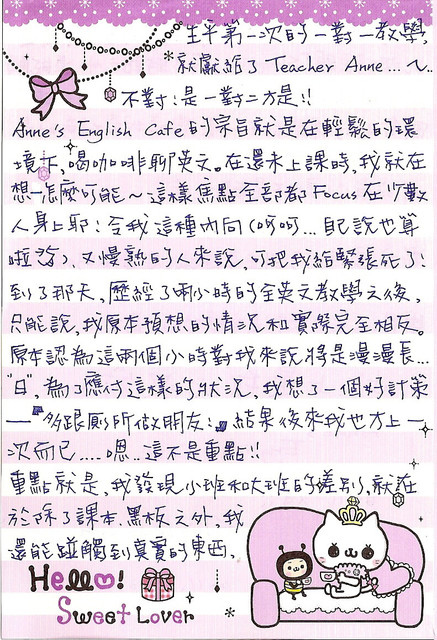 生平第一次的一對一教學,
就獻給了 Teacher Anne...ㄟ..
不對!是一對二方是!!
Anne's English Cafe的宗旨就是在輕鬆的環
境下,喝咖啡聊英文。在還未上課時,我就在
想-怎麼可能~這樣焦點全部都Focus在少數
人身上耶!令我這種內向(呵呵...自己說也算
啦
又慢熟的人來說,可把我給緊張死了!
到了那天,歷經了兩小時的全英文教學之後,
只能說,我原本預想的情況和實際完全相反。
原本認為這兩個小時對我來說將是漫漫長...
"日",為了應付這樣的狀況,我想了一個好計策
—『多跟廁所做朋友!』結果後來我也才上一
次而已....嗯..這不是重點!!
重點就是,我發現小班和大班的差別,就在
於除了課本、黑板之外,我
還能碰觸到真實的東西、
Hello!
Sweet Lover